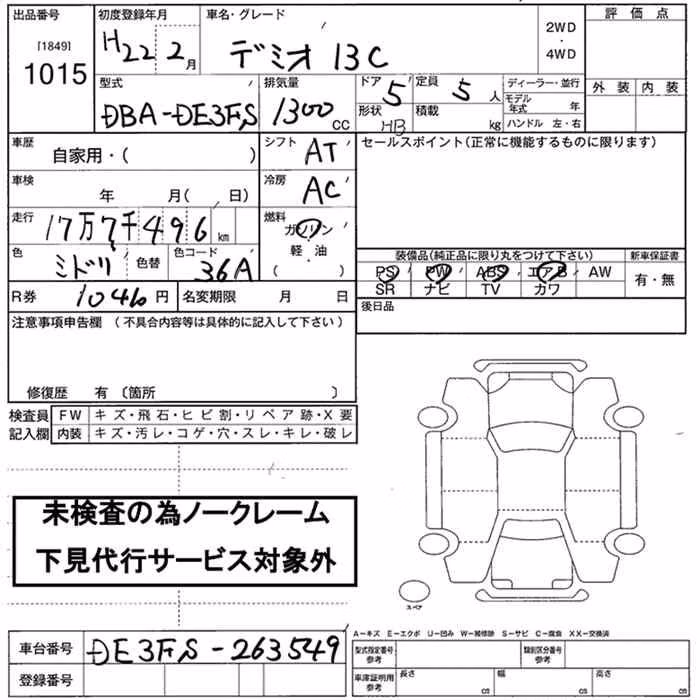 出品番号 [1849] 1015
初度登録年月 H22 2月
車名・グレード デミオ 13C
2WD・4WD
評価点
外装 内装
型式 DBA-DE3FS
排気量 1300 CC
ドア 5
形状 HB
定員 5人
積載 kg
ディーラー・並行
モデル年式 年
ハンドル 左・右
車歴 自家用・( )
シフト AT
セールスポイント(正常に機能するものに限ります)
車検 年 月( 日)
冷房 AC
走行 17万7千496km
燃料 ガソリン・軽・油 ( )
色 ミドリ 色替
色コード 36A
装備品(純正品に限り丸をつけて下さい)
新車保証書
PS PW ABS エアB AW
SR ナビ TV カワ
有・無
R券 1046円 名変期限 月 日
後日品
注意事項申告欄 (不具合内容等は具体的に記入して下さい)
修復歴 有 〔箇所 〕
検査員記入欄
FW キズ・飛石・ヒビ割・リペア跡・X要
内装 キズ・汚レ・コゲ・穴・スレ・キレ・破レ
未検査の為ノークレーム
下見代行サービス対象外
スペア
A−キズ E−エクボ U−凹み W−補修跡 S−サビ C−腐食 XX−交換済
車台番号 DE3FS-263549
登録番号
型式指定番号 参考
類別区分番号 参考
車庫証明用 参考
長さ cm 幅 cm 高さ cm